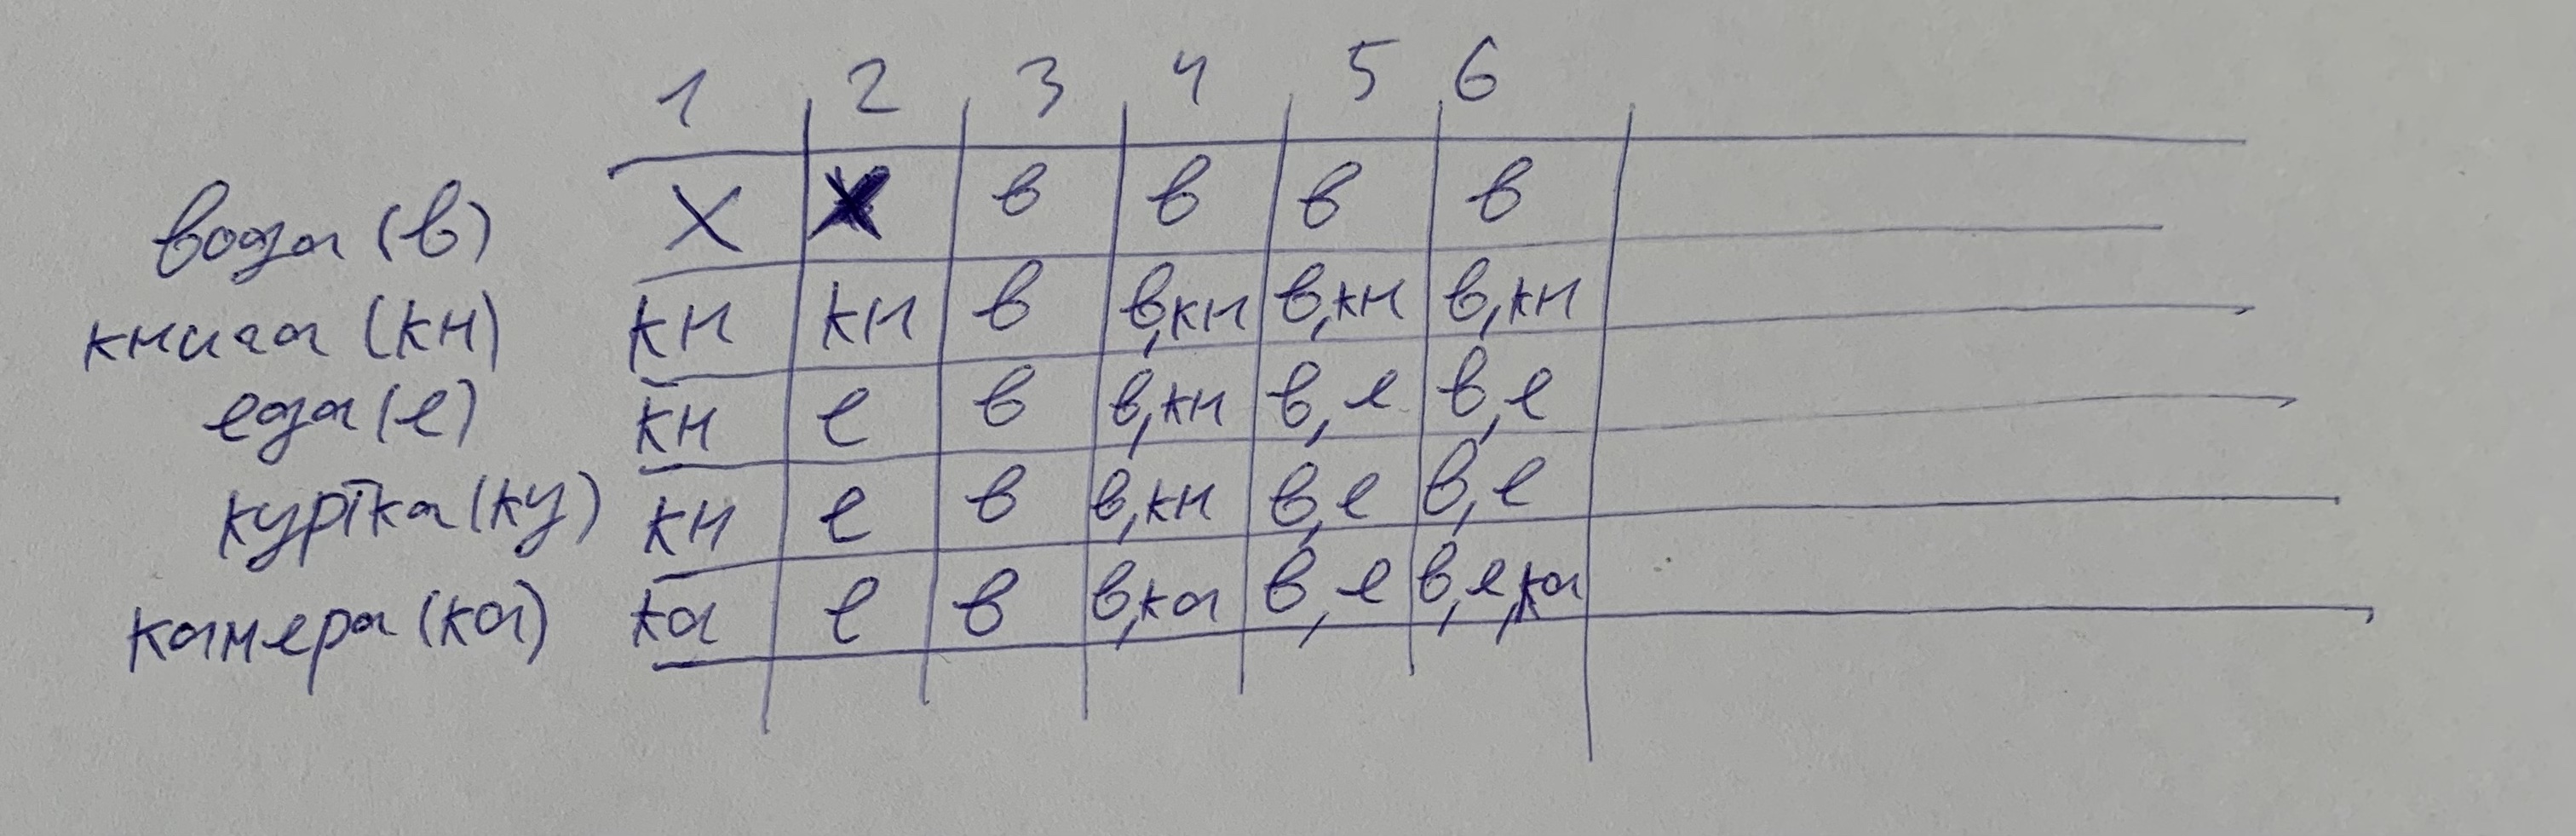 1 2 3 4 5 6
вода (в) X X в в в в
книга (кн) кн кн в в,кн в,кн в,кн
еда (е) кн е в в,кн в,е в,е
куртка (ку) кн е в в,кн в,е в,е
камера (ка) ка е в в,ка в,е в,е,ка